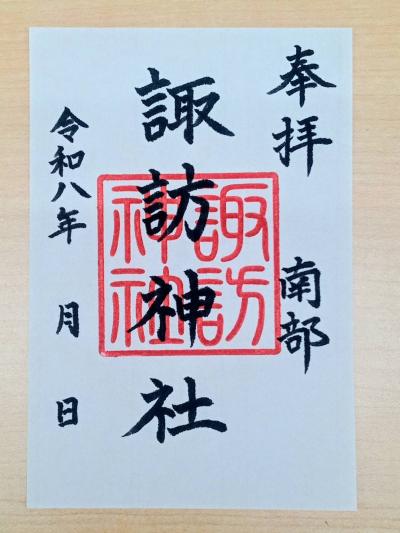 奉拝 南部
諏訪神社
諏訪
神社
令和八年 月 日